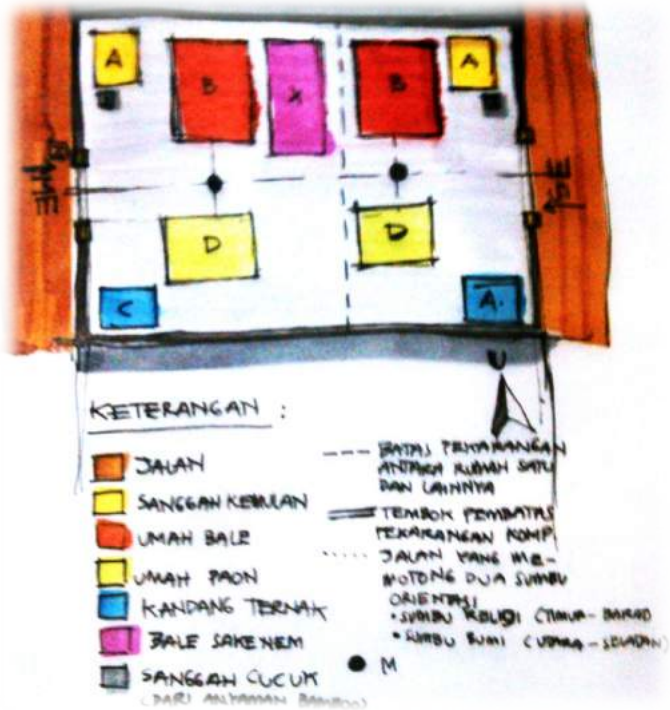 A
B
X
B
A
ME
ME
D
D
C
A.
U
KETERANGAN :
JALAN
SANGGAH KEMULAN
UMAH BALE
UMAH PAON
KANDANG TERNAK
BALE SAKENEM
SANGGAH CUCUK
(DARI ANYAMAN BAMBOO)
BATAS PEKARANGAN
ANTARA RUMAH SATU
DAN LAINNYA
TEMBOK PEMBATAS
PEKARANGAN KOMP
JALAN YANG ME-
MOTONG DUA SUMBU
ORIENTASI
• SUMBU RELIGI (TIMUR - BARAT
• SUMBU BUMI (UTARA - SELATAN)
M